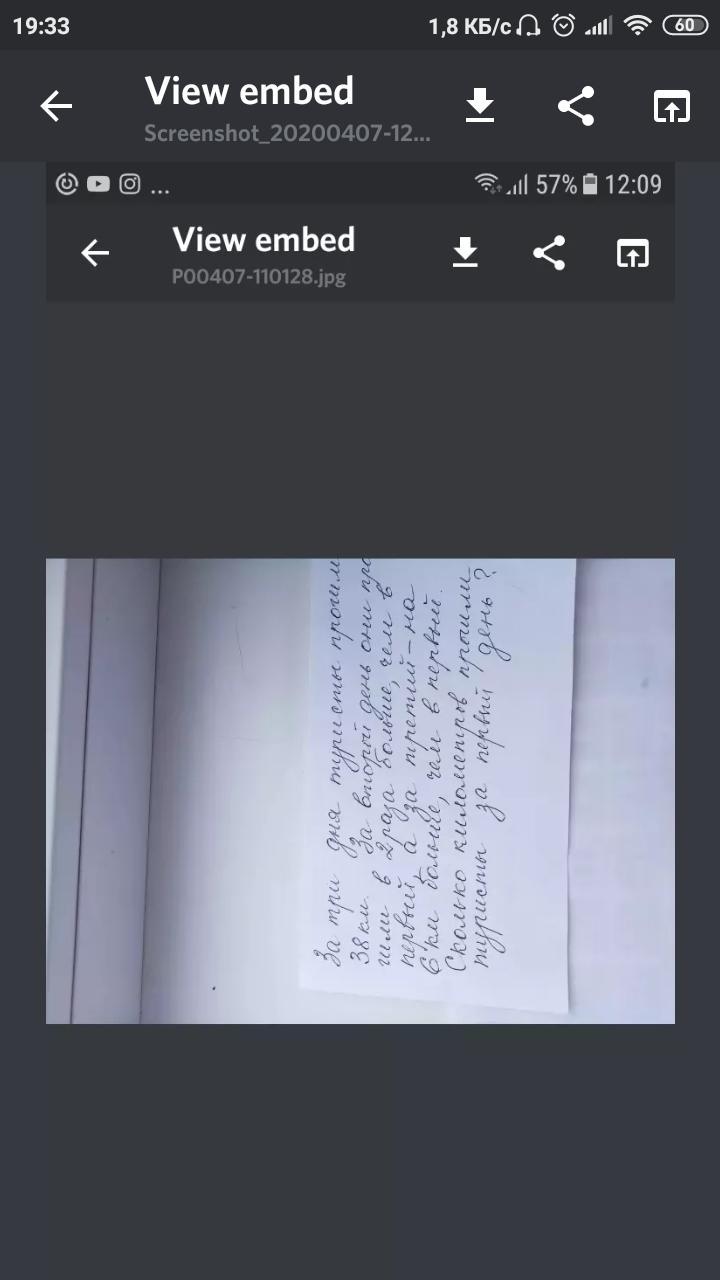 19:33
1,8 КБ/с 60
View embed
Screenshot_20200407-12...
... 57% 12:09
View embed
P00407-110128.jpg
За три дня туристы прошли
38 км. За второй день они про
шли в 2 раза больше, чем в
первый, а за третий - на
6 км больше, чем в первый.
Сколько километров прошли
туристы за первый день?